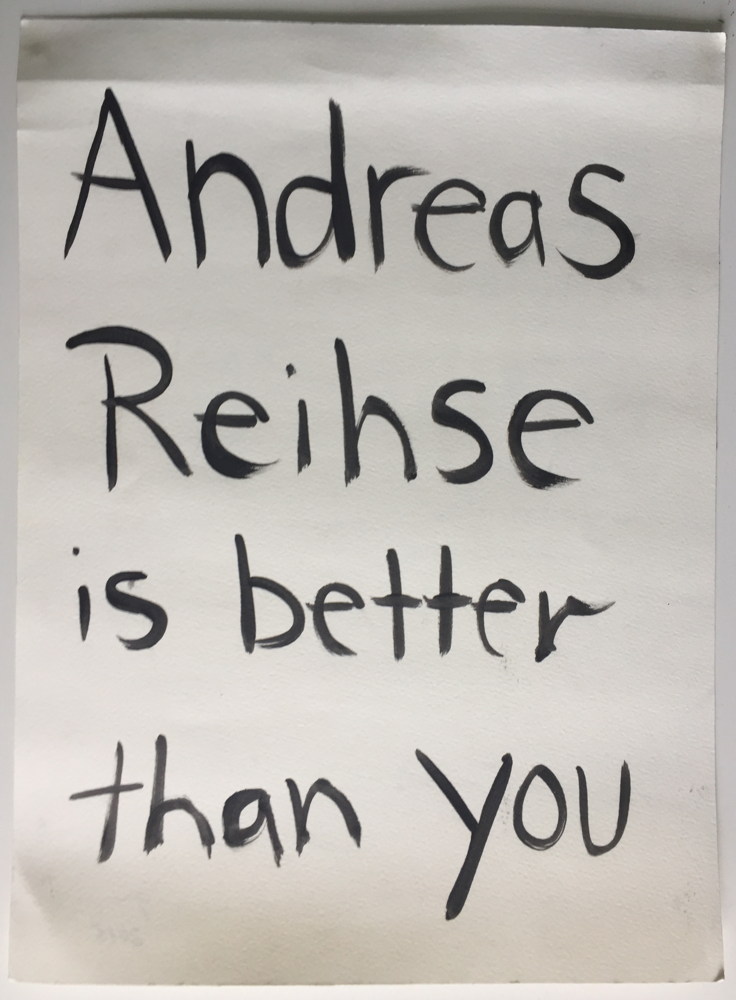 Andreas
Reihse
is better
than you